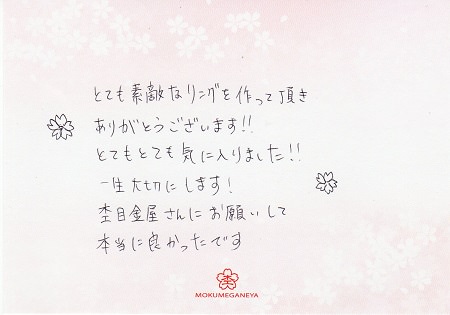 とても素敵なリングを作って頂き
ありがとうございます!!
とてもとても気に入りました!!
一生大切にします!
杢目金屋さんにお願いして
本当に良かったです
MOKUMEGANEYA